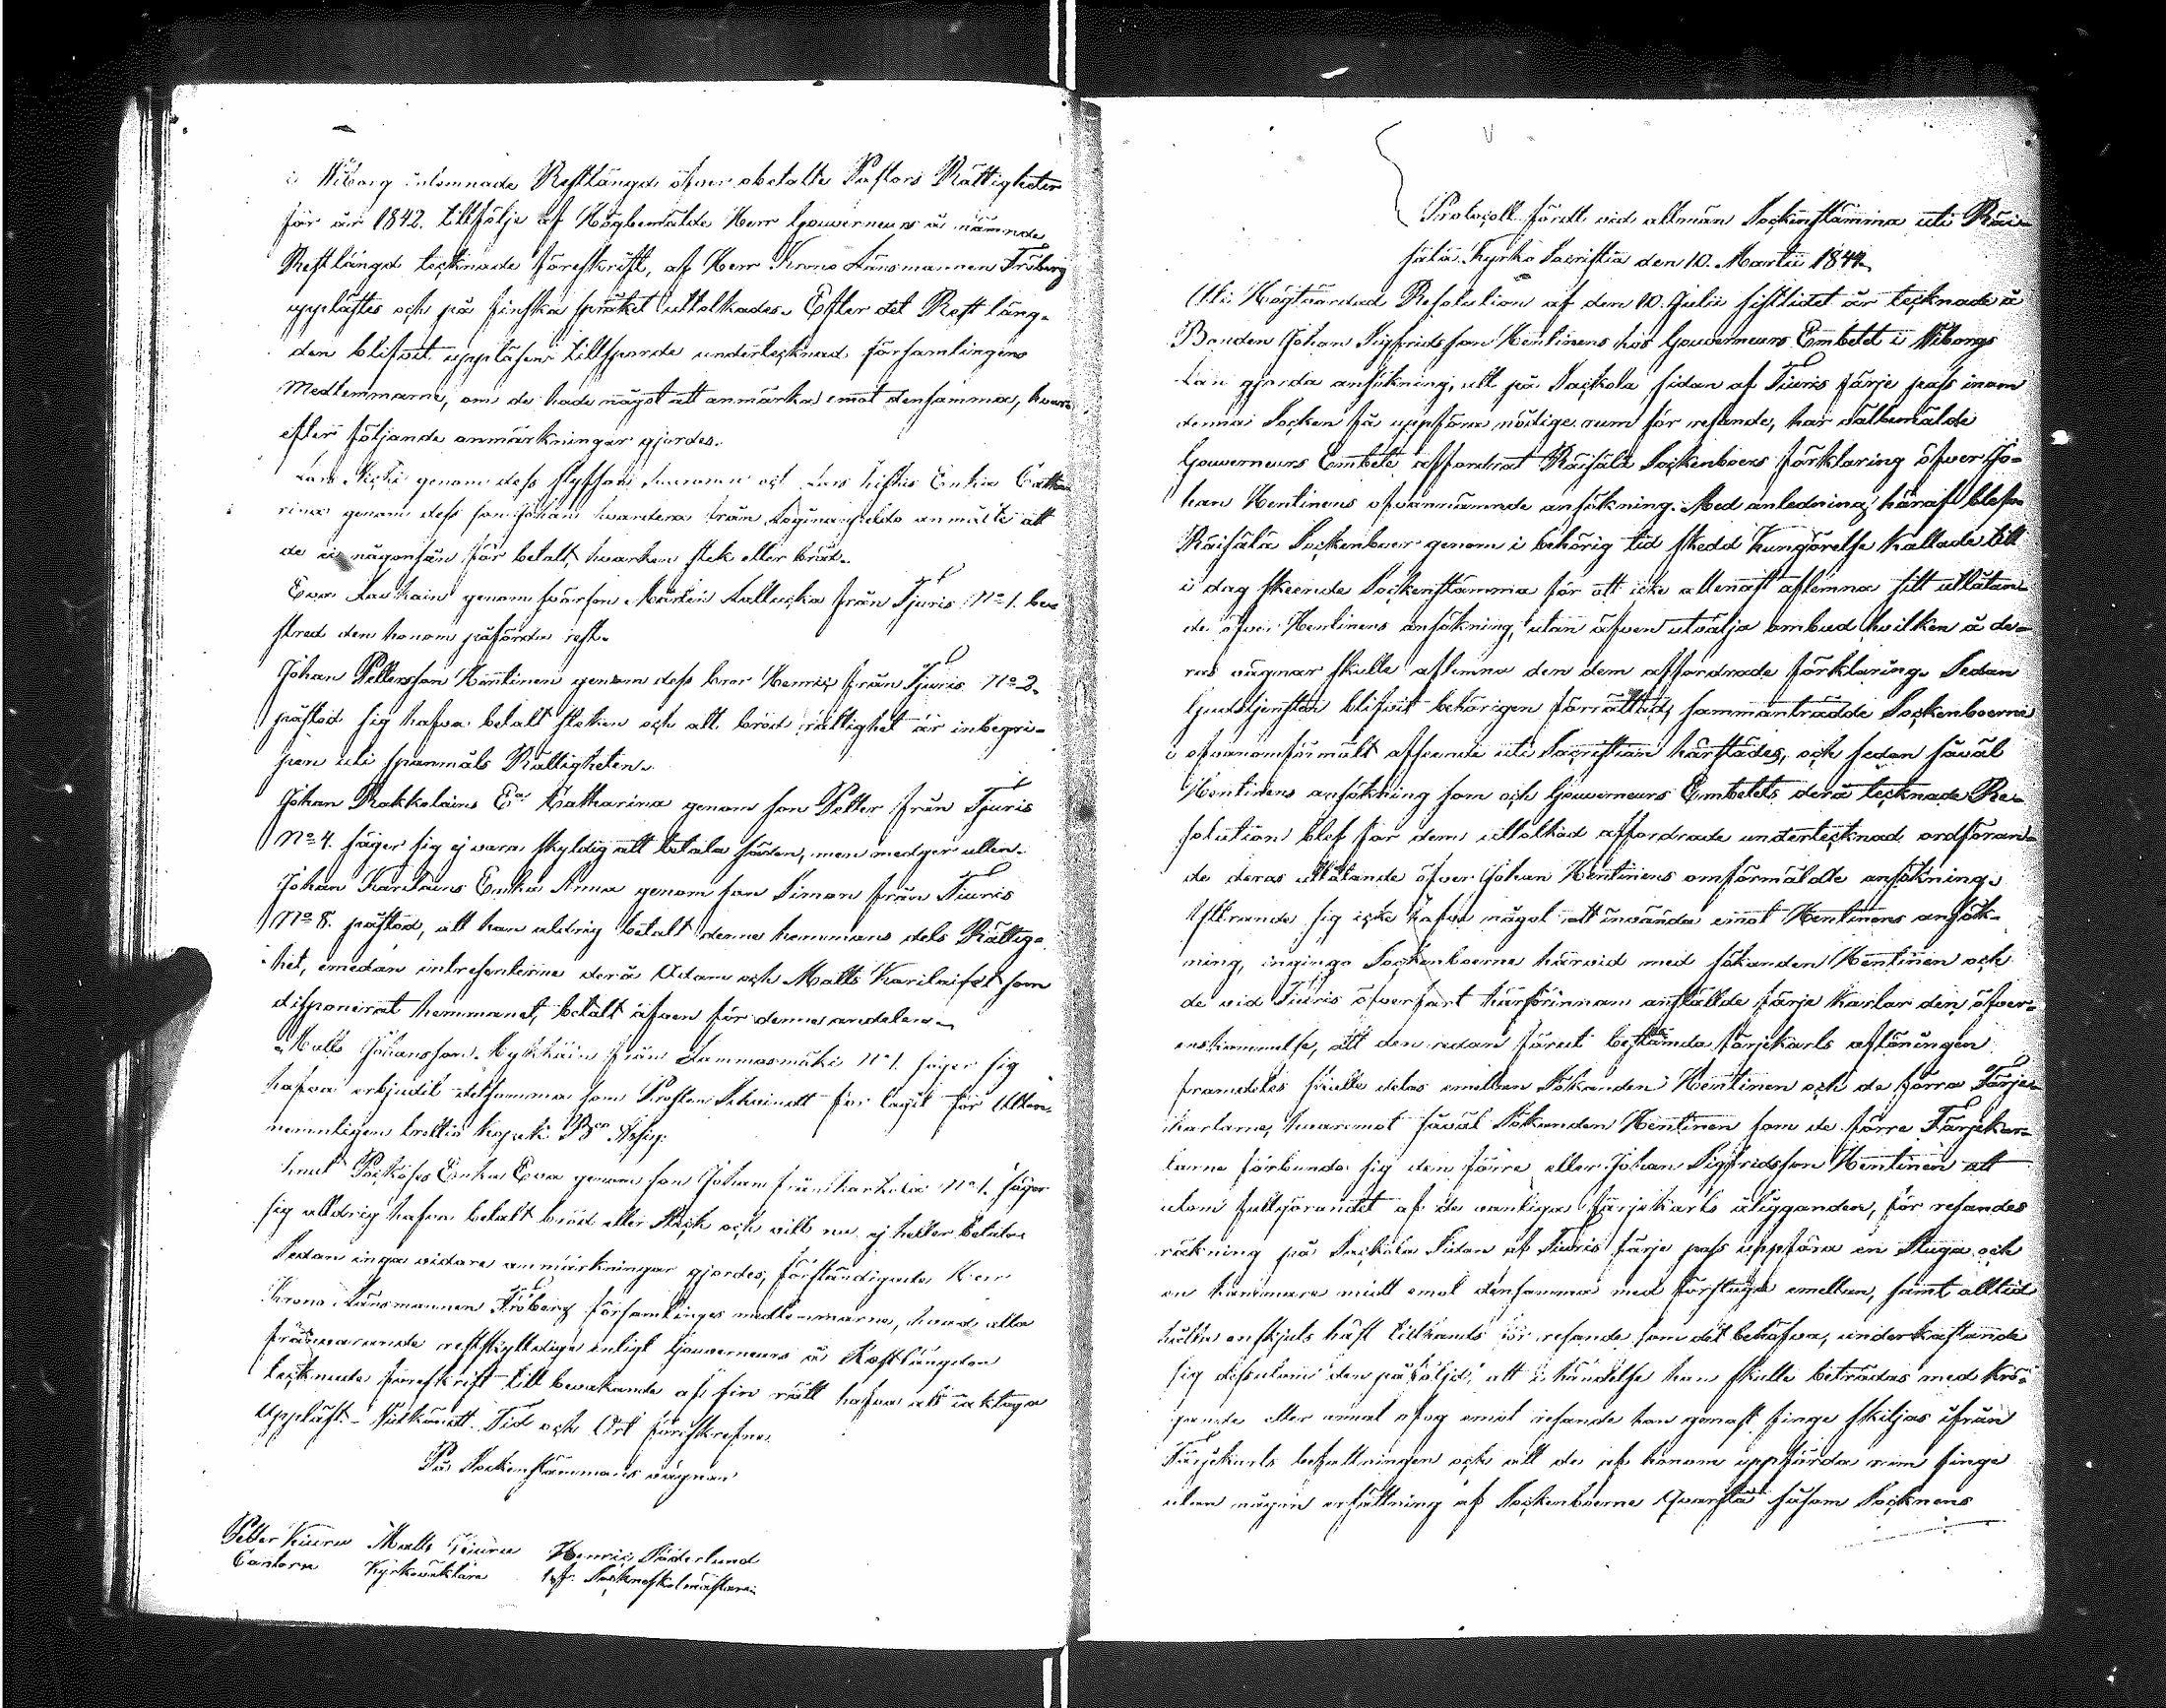 i Wiborg inlemnade Restlängd öfver obetalte Pastors Rättigheter
för år 1842. tillfölje af Högbemälde Herr Gouverneurs å nämnde
Restlängd tecknade föreskrift, af Herr Krono Länsmannen Fröberg
upplästes och på finska språket uttolkades. Efter det Rest läng-
den blifvit uppläsen tillsporde undertecknad församlingens
Medlemmarne, om de hade något att anmärka emot densamma, hvar-
efter följande anmärkningar gjordes.
Lars genom dess och Lars Enka Catha
rina genom dess son Johan från anmälte att
de ej någonsin för betalt, hvarken stek eller bröd.
Eva Laukain genom svärson Martin från Tjuris No 1. be-
stred den honom påförda rest.
Johan Pettersson Hentinen genom dess bror Henric från Tjuris No 2.
påstod sig hafva betalt steken och att bröd rättighet är inbegri-
pen uti spanmåls Rättigheten.
Johan Pakkolains Eas Katharina genom son Petter från Tjuris
No 4. säger sig ej vara skyldig att betala saken, men medger ullen.
Johan Karilains Enka Anna genom son Simon från Tiuris
No 8. påstod, att han aldrig betalt denne hemmans dels Rättig-
het, emedan intressenterne derå Adam och Matts Karilaiset som
disponerat hemmanet, betalt äfven för denne andelen.
Matts Johansson Mykkäin från Lammasmäki No 1. säger sig
hafva erbjudit detsamma som Prosten för Ullen
nemnligen trettio kopek Bco Assig.
Knut Enka Eva genom son Johan från No 1. säger
sig alldrig hafva betalt bröd eller stek och vill nu ej heller betala
Sedan inga vidare anmärkningar gjordes, förständigade Herr
Krono Länsmannen Fröberg församlinges medlemmarne, hvad alla
frånvarande restskyldige enligt Gouverneurs å Restlängden
tecknade föreskrift till bevakande af sin rätt hafva att iakttaga
Uppläst. Vidkändt. Tid och Ort föreskrefne.
På Sockenstämmans vägnar
Petter Kiuru Matts Kiuru Henric Söderlund
Cantor Kyrkoväktare Socknskolmästare
Protocoll fördt vid allmän Sockenstämma uti Räi-
sälä Kyrko Sacristia den 10. Martii 1844.
Uti Högtvördad Resolution af den 10. Julii sistlidet år tecknade å
Bonden Johan Sigfridsson Hentinens hos Gouverneurs Embetet i Wiborgs
Län gjorda ansökning, att på Sackola sidan af Tiuris färje pass inom
denna Socken få uppföra nödige rum för resande, har välbemälde
Gouverneurs Embete affordrat Räisälä Sockenboers förklaring öfver Jo-
han Hentinens ofvannämnde ansökning. Med anledning häraf blefvo
Räisälä Sockenboer genom i behörig tid skedd kungörelse kallade till
i dag skeende Sockenstämma för att icke allenast aflemna sitt utlåtan-
de öfver Hentinens ansökning, utan äfven utvälja ombud hvilken å de-
ras vägnar skulle aflemna den dem affordrade förklaring. Sedan
Gudstjensten blifvit behörigen förrättad, sammanträdde Sockenboerne
i ofvanomförmält afseende uti Sacristian härstädes, och sedan såväl
Hentinens ansökning som och Gouverneurs Embetets derå tecknade Re-
solution blef för dem uttolkad affordrade undertecknad ordföran-
de deras utlåtande öfver Johan Hentinens omförmäldte ansökning.
Yttrande sig icke hafva något att invända emot Hentinens ansök-
ning, ingingo Sockenboerne härvid med sökanden Hentinen och
de vid Tiuris öfverfart härförinnan anstälde färje karlar den öfver-
enskommelse, att den redan förut bestämda färjekarls aflöningen
framdeles skulle delas emellan Sökanden Hentinen och de förra Färje-
karlarne, hvaremot såväl Sökanden Hentinen som de förre Färjekar-
larne förbundo sig den förre eller Johan Sigfridsson Hentinen att
utom fullgörandet af de vanliga Färjekarls åligganden, för resandes
räkning på Sackola Sidan af Tiuris färje pass uppföra en Stuga och
en kammare midt emot densamma med förstuga emellan, samt alltid
hålla en skjuts häst tillhands för resande som det behöfva, underkastande
sig dessutom den påföljd, att i händelse han skulle beträdas med krö-
gande eller annat ofog emot resande han genast finge skiljas ifrån
Färjekarls befattningen och att de af honom uppförda rum finge
utan någon ersättning af Sockenboerne qvarstå såsom Socknens